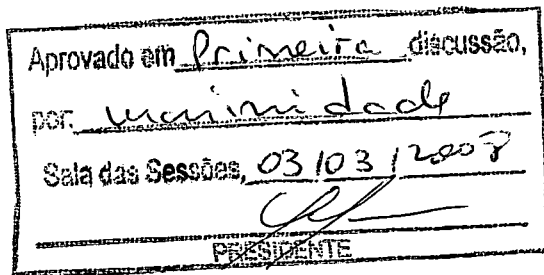 Aprovado em Primeira discussão,
por: unanimidade
Sala das Sessões, 03/03/2008
PRESIDENTE